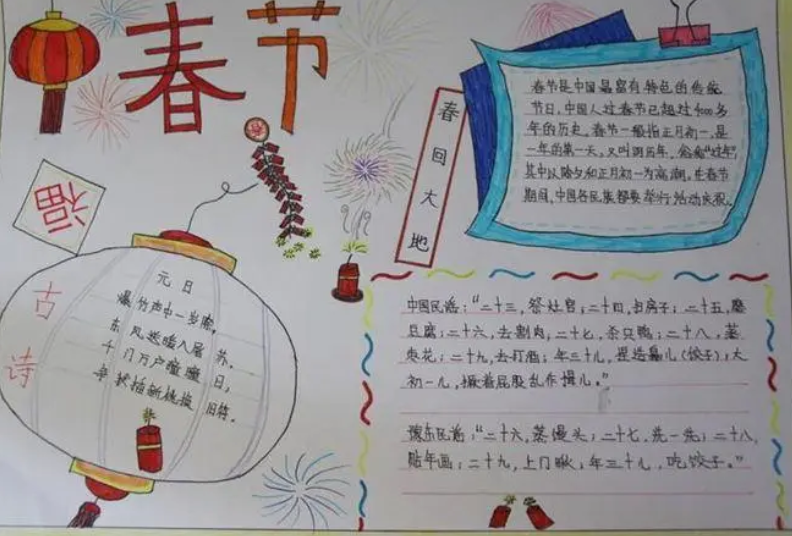 春节
福
春回大地
春节是中国最富有特色的传统
节日，中国人过春节已超过4000多
年的历史，春节一般指正月初一，是
一年的第一天，又叫阴历年，俗称“过年”
其中以除夕和正月初一为高潮。在春节
期间，中国各民族都要举行活动庆祝。
古诗
元日
爆竹声中一岁除，
东风送暖入屠苏。
千门万户曈曈日，
争插新桃换旧符。
中国民谣：“二十三，祭灶官；二十四，扫房子；二十五，磨
豆腐；二十六，去割肉；二十七，杀只鸭；二十八，蒸
枣花；二十九，去打酒；年三十儿，捏造鼻儿（饺子）；大
初一儿，撅着屁股乱作揖儿。”
豫东民谣：“二十六，蒸馒头；二十七，洗一洗；二十八，
贴年画；二十九，上门瞅；年三十儿，吃饺子。”